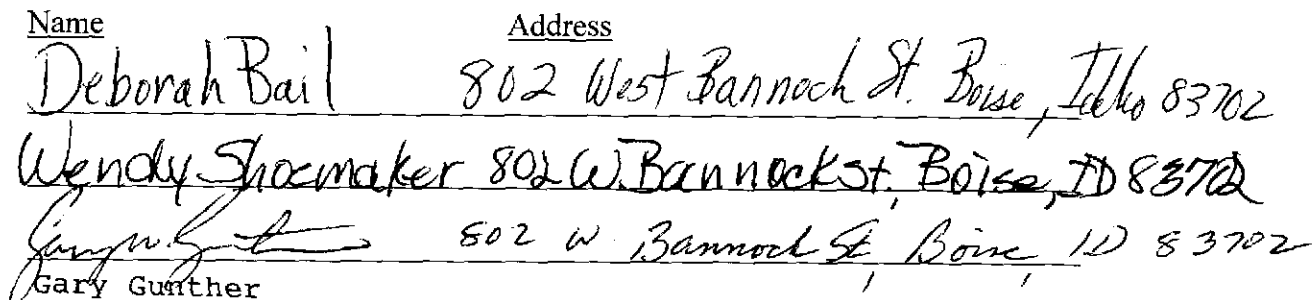 Name Address
Deborah Bail 802 West Bannock St. Boise, Idaho 83702
Wendy Shoemaker 802 W. Bannock St., Boise, ID 83702
Gary W. Gunther 802 W. Bannock St, Boise, ID 83702
Gary Gunther